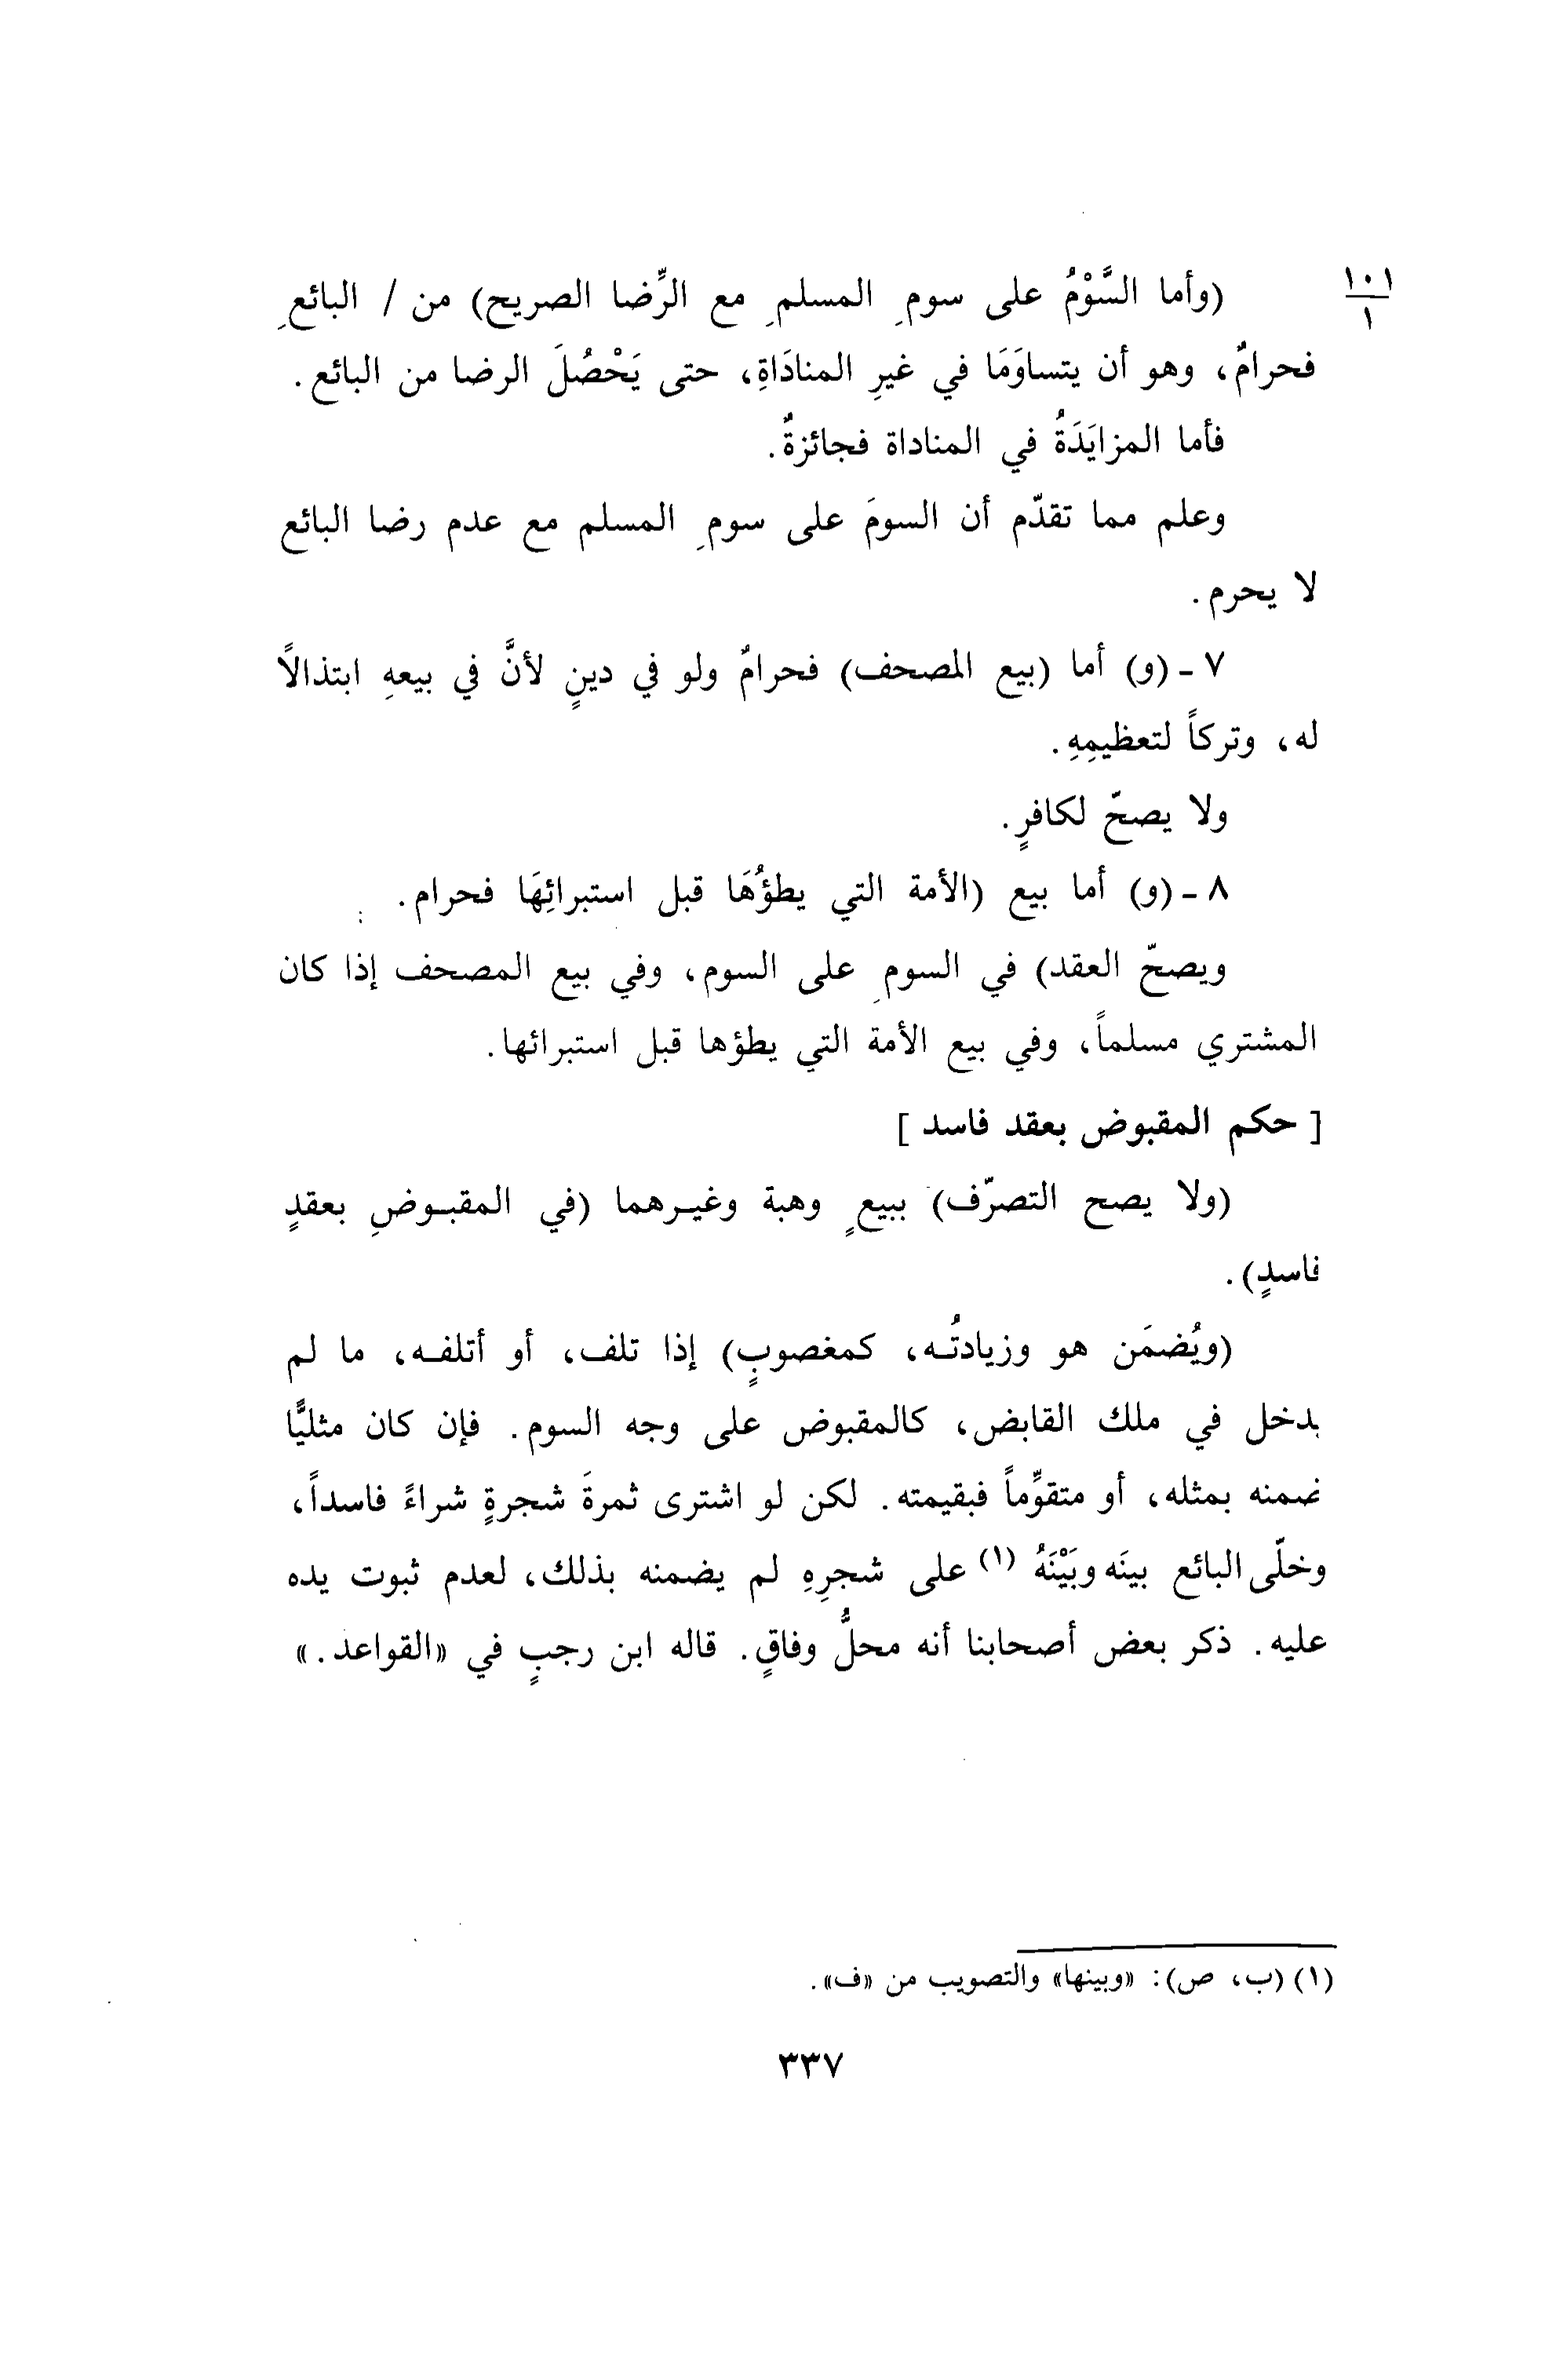 ١٠١
١
(وأما السَّوْمُ على سومِ المسلمِ مع الرِّضا الصريح) من / البائعِ
فحرامٌ، وهو أن يتساوَمَا في غيرِ المنادَاةِ، حتى يَحْصُلَ الرضا من البائع.
فأما المزايَدَةُ في المناداة فجائزةٌ.
وعلم مما تقدّم أن السومَ على سومِ المسلم مع عدم رضا البائع
لا يحرم.
٧ - (و) أما (بيع المصحف) فحرامٌ ولو في دينٍ لأنَّ في بيعهِ ابتذالًا
له، وتركاً لتعظيمِهِ.
ولا يصحّ لكافرٍ.
٨ - (و) أما بيع (الأمة التي يطؤُهَا قبل استبرائِهَا فحرام.
ويصحّ العقد) في السومِ على السوم، وفي بيع المصحف إذا كان
المشتري مسلماً، وفي بيع الأمة التي يطؤها قبل استبرائها.
[ حكم المقبوض بعقد فاسد ]
(ولا يصح التصرّف) ببيعٍ وهبة وغيرهما (في المقبوضِ بعقدٍ
فاسدٍ).
(ويُضمَن هو وزيادتُه، كمغصوبٍ) إذا تلف، أو أتلفه، ما لم
يدخل في ملك القابض، كالمقبوض على وجه السوم. فإن كان مثليًّا
ضمنه بمثله، أو متقوِّماً فبقيمته. لكن لو اشترى ثمرةَ شجرةٍ شراءً فاسداً،
وخلّى البائع بينَه وبَيْنَهُ (١) على شجرِهِ لم يضمنه بذلك، لعدم ثبوت يده
عليه. ذكر بعض أصحابنا أنه محلُّ وفاقٍ. قاله ابن رجبٍ في «القواعد.»
(١) (ب، ص): «وبينها» والتصويب من «ف».
٣٣٧